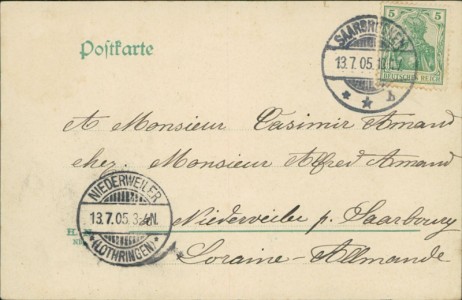 Postkarte
SAARBRÜCKEN
13.7.05.
b
5 5
DEUTSCHES REICH
A Monsieur Casimir Amand
chez Monsieur Alfred Amand
Niederweiler p. Saarbourg
Loraine-Allmande
NIEDERWEILER
13.7.05.
(LOTHRINGEN)